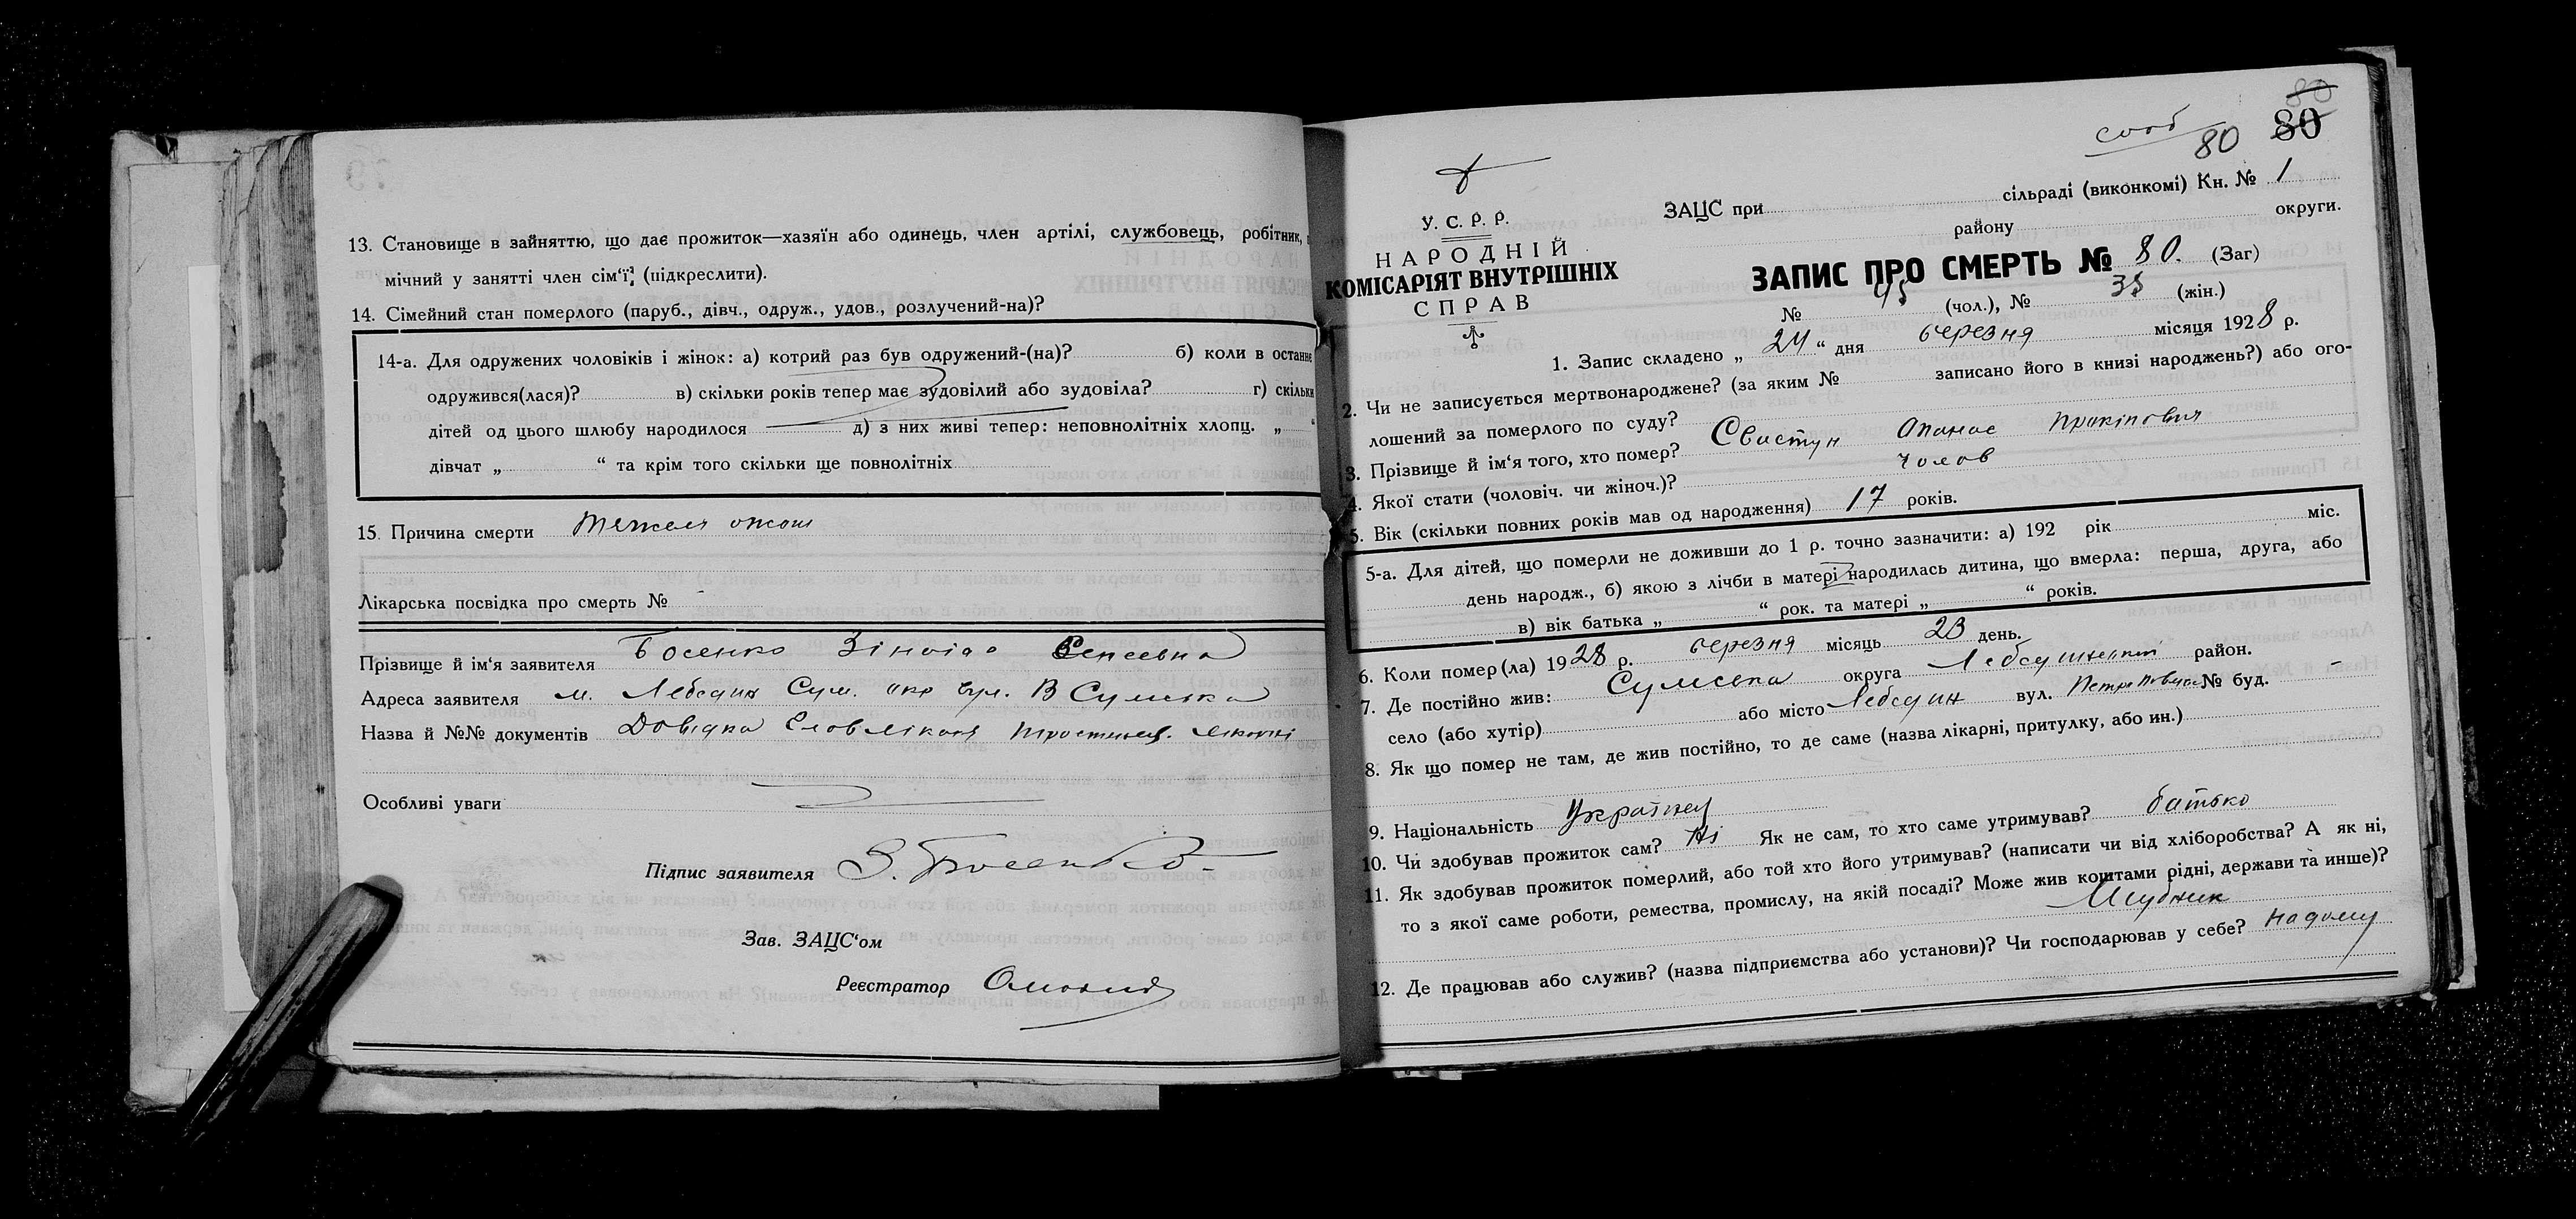 13. Становище в зайняттю, що дає прожиток—хазяїн або одинець, член артілі, службовець, робітник,
мічний у занятті член сім'ї, (підкреслити).
14. Сімейний стан померлого (паруб., дівч., одруж., удов., розлучений-на)?
14-а. Для одружених чоловіків і жінок: а) котрий раз був одружений-(на)? б) коли в останнє
одружився(лася)? в) скільки років тепер має зудовілий або зудовіла? г) скільки
дітей од цього шлюбу народилося д) з них живі тепер: неповнолітніх хлопц. „ “
дівчат „ “ та крім того скільки ще повнолітніх
15. Причина смерти
Лікарська посвідка про смерть №
Прізвище й ім'я заявителя Босенко Зіновія
Адреса заявителя м. Лебедин Сум. окр вул. В Сумська
Назва й №№ документів Довідка Тростянец. лікарні
Особливі уваги
Підпис заявителя З. Босенко
Зав. ЗАЦС'ом
Реєстратор
80
80
80
У. С. Р. Р.
НАРОДНІЙ
КОМІСАРІЯТ ВНУТРІШНІХ
СПРАВ
ЗАЦС при сільраді (виконкомі) Кн. № 1
району округи.
ЗАПИС ПРО СМЕРТЬ № 80. (Заг)
№ 45 (чол.), № 35 (жін.)
1. Запис складено „ 24 “ дня березня місяця 1928 р.
2. Чи не записується мертвонароджене? (за яким № записано його в книзі народжень?) або ого-
лошений за померлого по суду?
3. Прізвище й ім'я того, хто помер? Свистун Опанас Прокіпович
4. Якої стати (чоловіч. чи жіноч.)? чолов
5. Вік (скільки повних років мав од народження) 17 років.
5-а. Для дітей, що померли не доживши до 1 р. точно зазначити: а) 192 рік міс.
день народж., б) якою з лічби в матері народилась дитина, що вмерла: перша, друга, або
в) вік батька „ “ рок. та матері „ “ років.
6. Коли помер(ла) 1928 р. березня місяць 23 день.
7. Де постійно жив: Сумська округа Лебединський район.
село (або хутір) або місто Лебедин вул. № буд. –
8. Як що помер не там, де жив постійно, то де саме (назва лікарні, притулку, або ин.)
9. Національність Українец
10. Чи здобував прожиток сам? Ні Як не сам, то хто саме утримував? батько
11. Як здобував прожиток померлий, або той хто його утримував? (написати чи від хліборобства? А як ні,
то з якої саме роботи, ремества, промислу, на якій посаді? Може жив коштами рідні, держави та инше)?
12. Де працював або служив? (назва підприємства або установи)? Чи господарював у себе? на дому